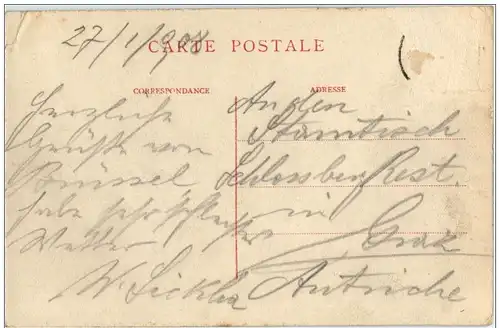 27/1/908
CARTE POSTALE
CORRESPONDANCE
ADRESSE
Herzliche
Grüße von
Brüssel,
habe sehr schlechtes
Wetter
W. Sickler
An den
Stamtisch
Schlossberg Rest.
in
Graz
Autriche